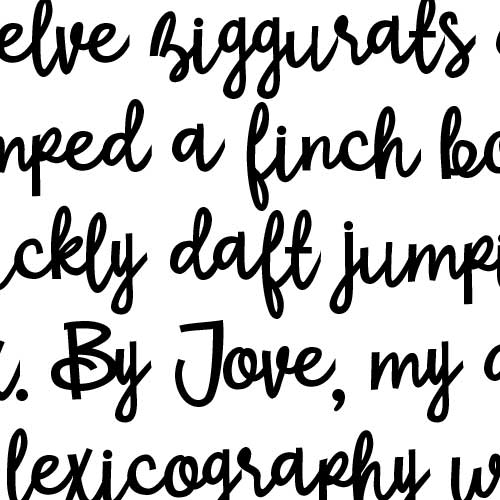 elve ziggurats
mped a finch bo
ickly daft jumpi
. By Jove, my
lexicography w